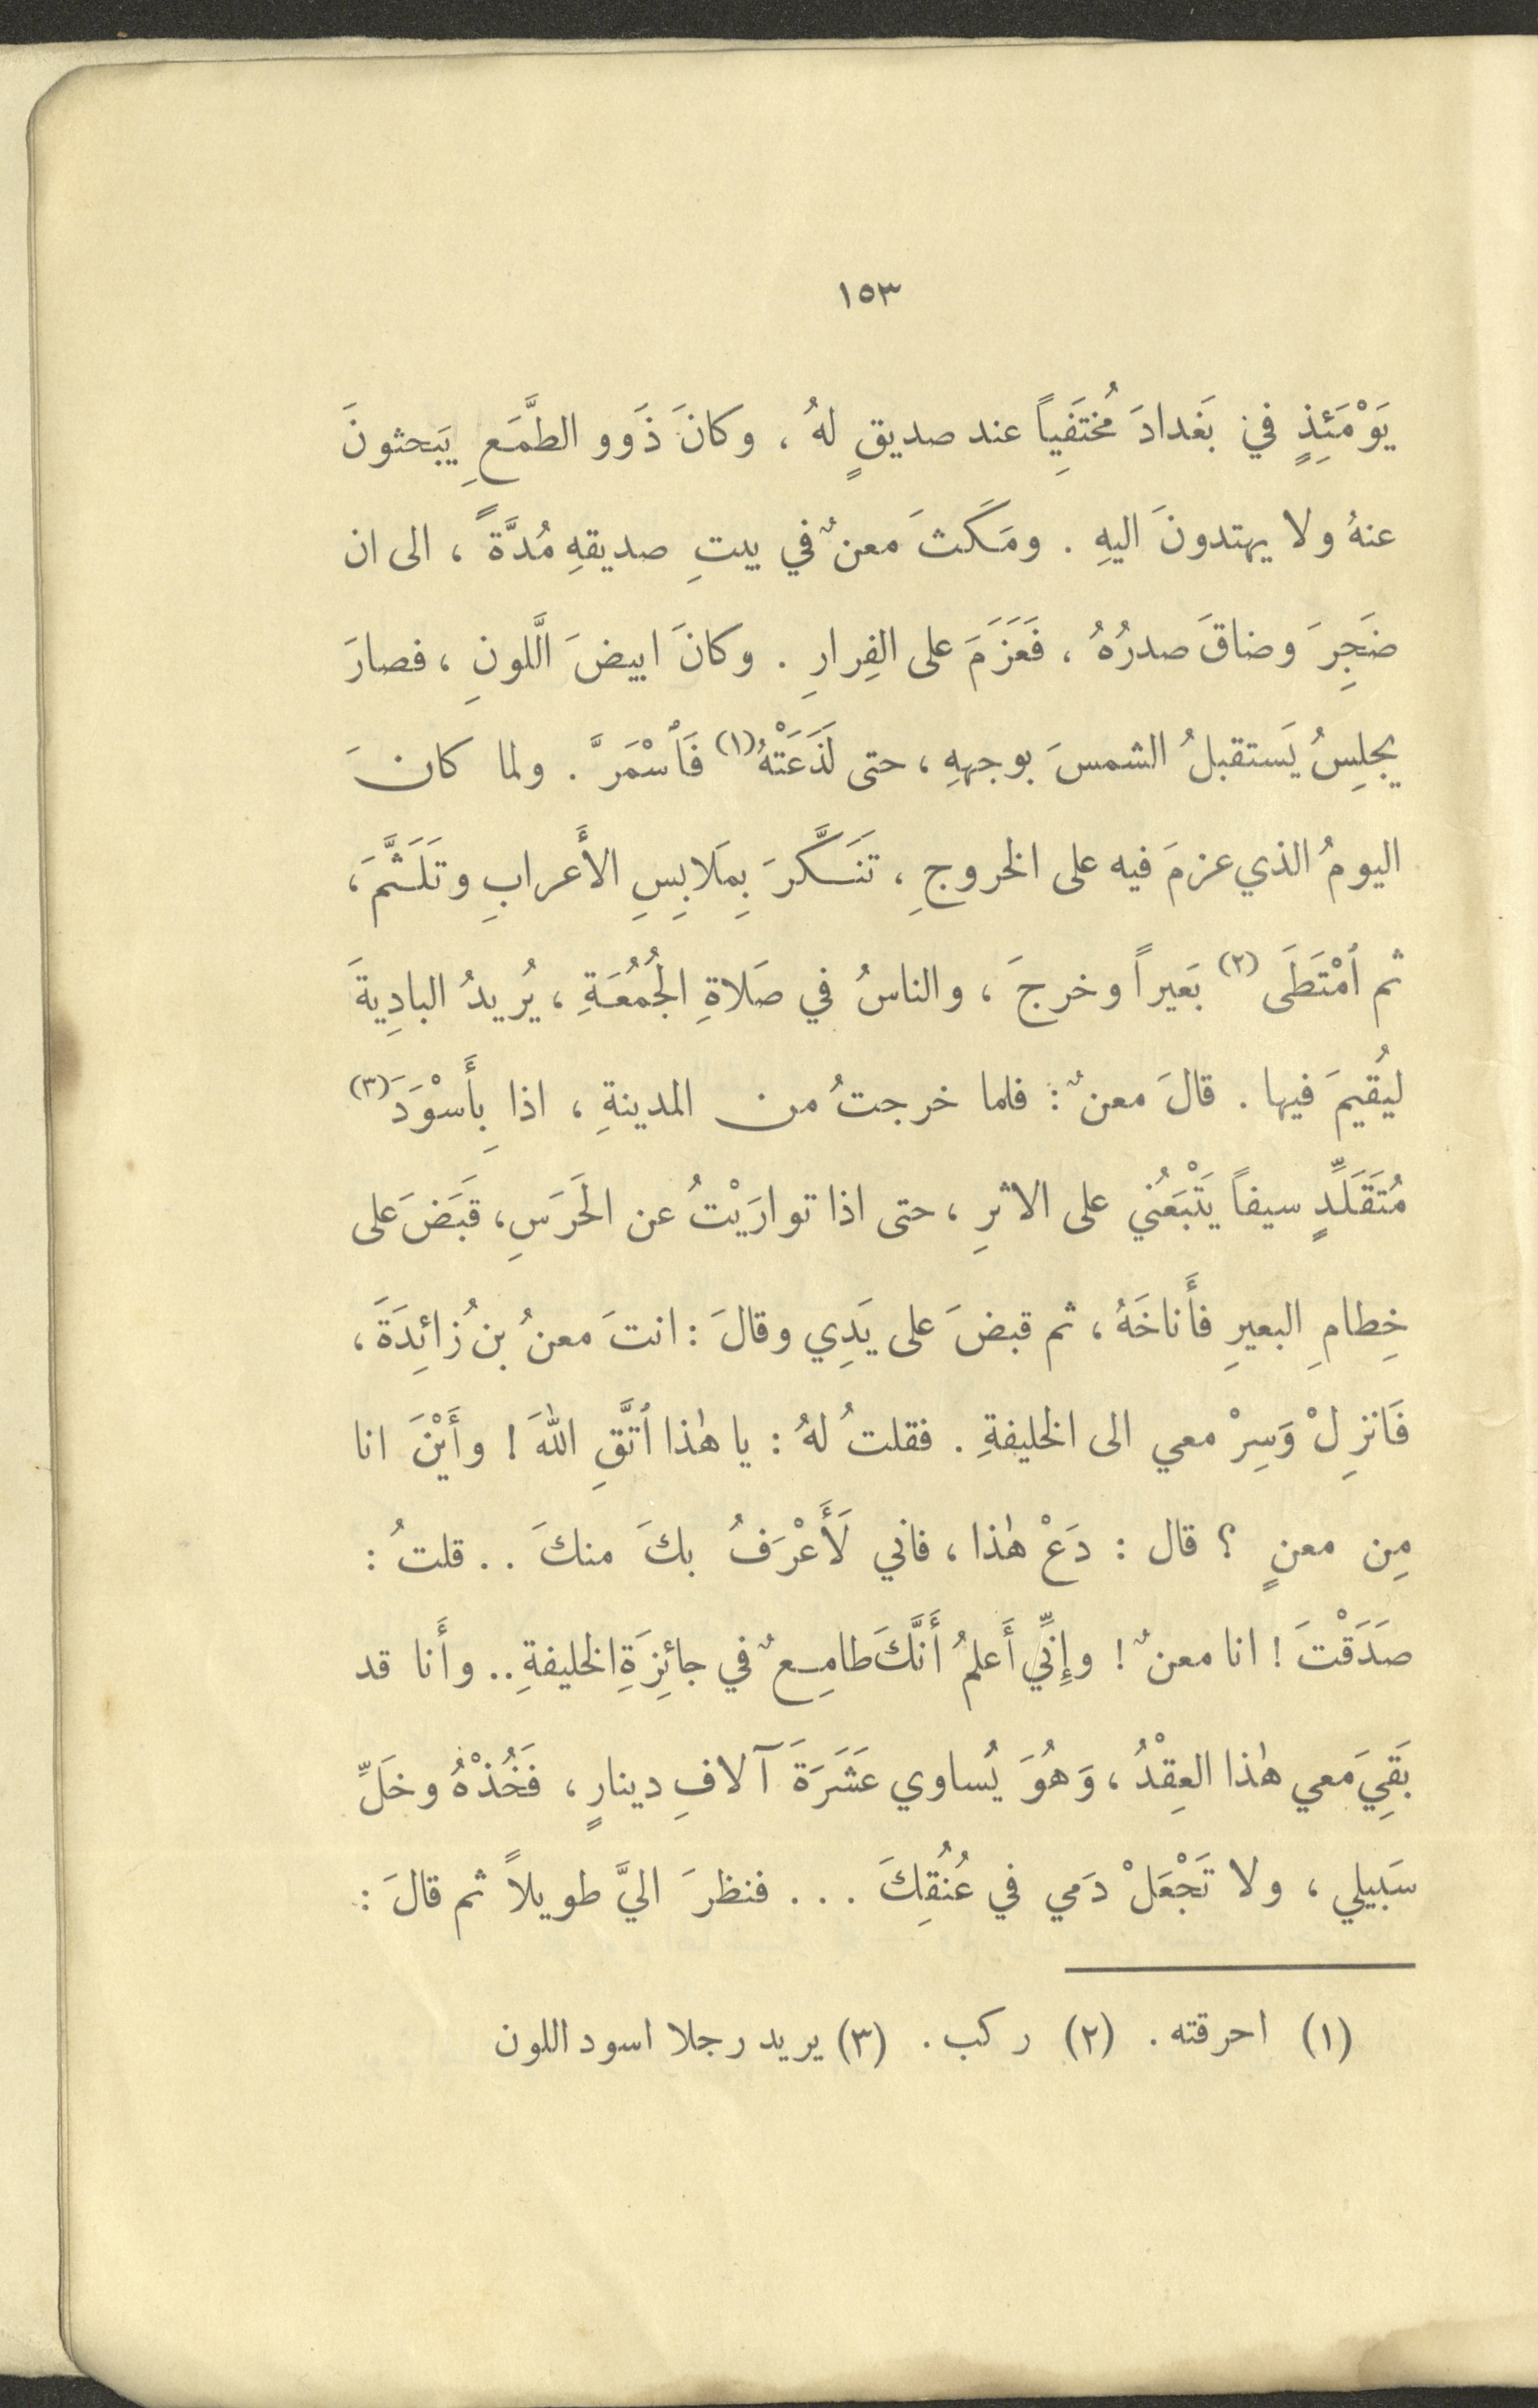 ١٥٣
يَوْمَئِذٍ في بَغدادَ مُختَفِياً عند صديقٍ لهُ ، وكانَ ذَوو الطَّمَعِ يَبحثونَ
عنهُ ولا يهتدونَ اليهِ . ومَكَثَ معنٌ في بيتِ صديقهِ مُدَّةً ، الى ان
ضَجِرَ وضاقَ صدرُهُ ، فَعَزَمَ على الفِرارِ . وكانَ ابيضَ الَّلونِ ، فصارَ
يجلِسُ يَستقبلُ الشمسَ بوجههِ ، حتى لَذَعَتْهُ (١) فَٱسْمَرَّ . ولما كانَ
اليومُ الذي عزمَ فيه على الخروجِ ، تَنَكَّرَ بِمَلابِسِ الأَعرابِ وتَلَثَّمَ ،
ثم ٱمْتَطَى (٢) بَعيراً وخرجَ ، والناسُ في صَلاةِ الجُمُعَةِ ، يُريدُ البادِيةَ
ليُقيمَ فيها . قالَ معنٌ : فلما خرجتُ من المدينةِ ، اذا بِأَسْوَدَ (٣)
مُتَقَلِّدٍ سيفاً يَتْبَعُني على الاثرِ ، حتى اذا توارَيْتُ عن الحَرَسِ ، قَبَضَ على
خِطامِ البعيرِ فأَناخَهُ ، ثم قبضَ على يَدِي وقالَ : انتَ معنُ بنُ زائِدَةَ ،
فَانزِلْ وَسِرْ معي الى الخليفةِ . فقلتُ لهُ : يا هٰذا ٱتَّقِ اللهَ ! وأَيْنَ انا
مِن معنٍ ؟ قال : دَعْ هٰذا ، فاني لَأَعْرَفُ بكَ منكَ . . قلتُ :
صَدَقْتَ ! انا معنٌ ! وإِنِّي أَعلمُ أَنَّكَ طامِعٌ في جائِزَةِ الخليفةِ . . وأَنا قد
بَقِيَ معي هٰذا العِقْدُ ، وَهُوَ يُساوي عَشَرَةَ آلافِ دينارٍ ، فَخُذْهُ وخَلِّ
سَبيلي ، ولا تَجْعَلْ دَمي في عُنُقِكَ . . . فنظرَ اليَّ طويلاً ثم قالَ :
(١) احرقته . (٢) ركب . (٣) يريد رجلا اسود اللون